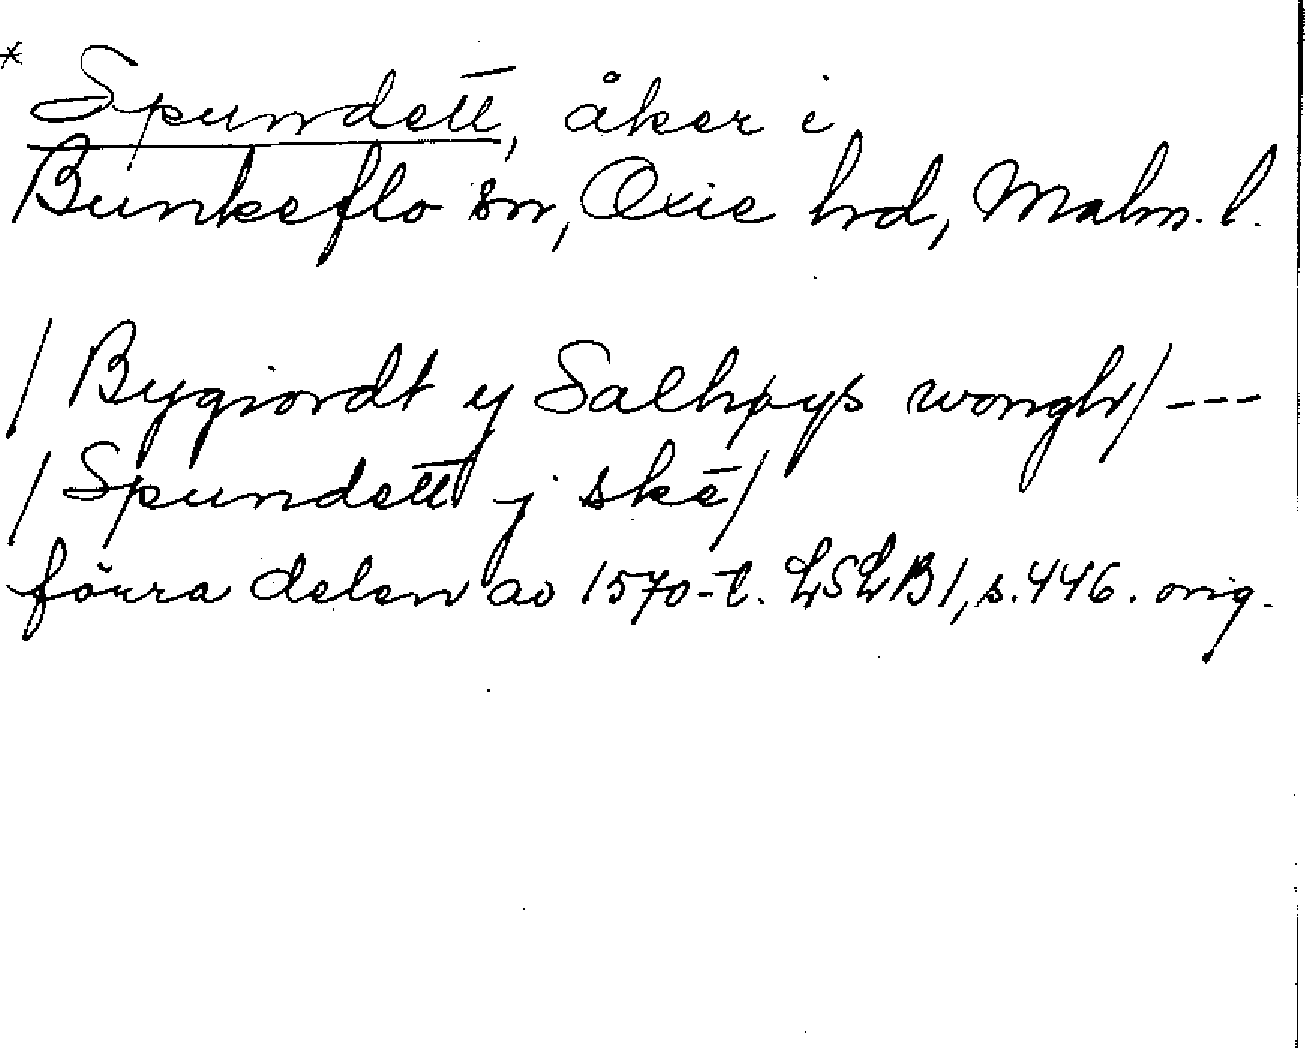 * Spundett̄, åker i
Bunkeflo sn, Oxie hrd, Malm. l.
/ Bygiordt y Salhpys wongh/ ---
/ Spundett̄ j skē/
förra delen av 1570-t. LSLB1, s.446. orig.